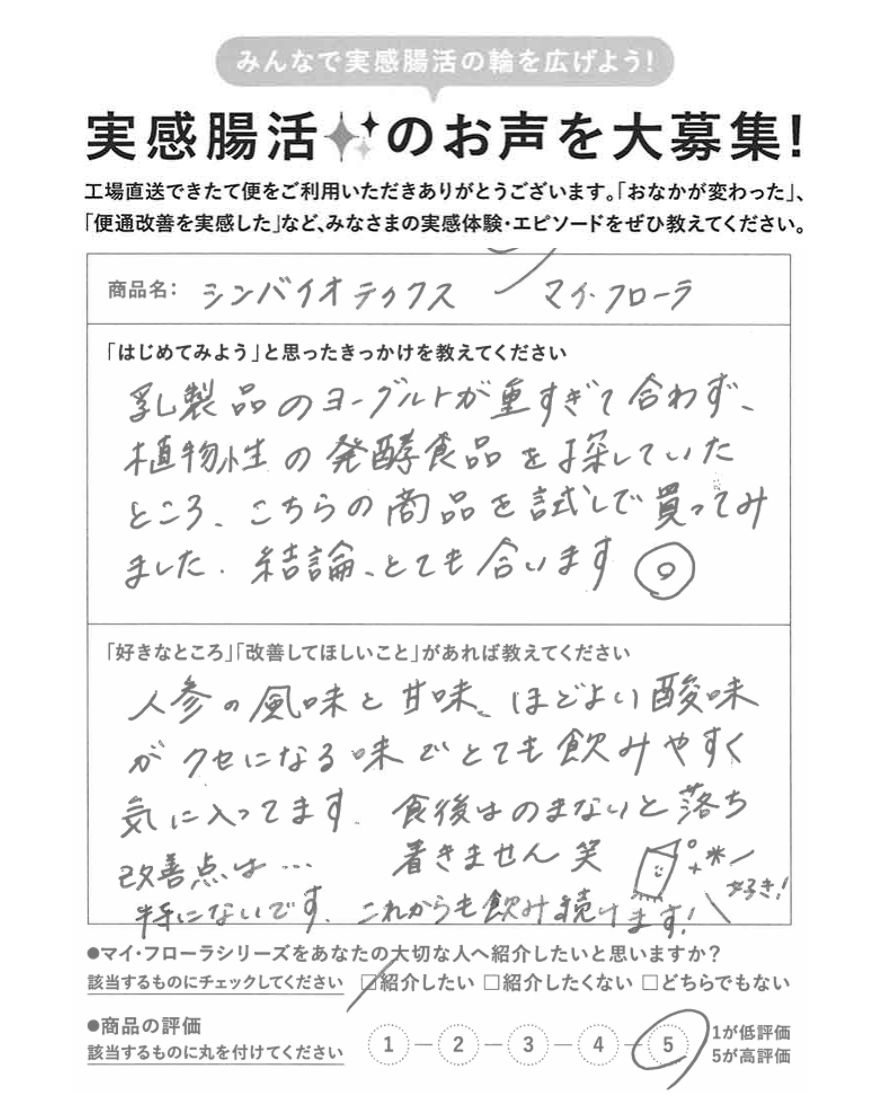 みんなで実感腸活の輪を広げよう!
実感腸活のお声を大募集!
工場直送できたて便をご利用いただきありがとうございます。「おなかが変わった」、
「便通改善を実感した」など、みなさまの実感体験・エピソードをぜひ教えてください。
商品名: シンバイオティクス マイ・フローラ
「はじめてみよう」と思ったきっかけを教えてください
乳製品のヨーグルトが重すぎて合わず、
植物性の発酵食品を探していた
ところ、こちらの商品を試しで買ってみ
ました. 結論、とても合います ◎
「好きなところ」「改善してほしいこと」があれば教えてください
人参の風味と甘味、ほどよい酸味
がクセになる味でとても飲みやすく
気に入ってます. 食後はのまないと落ち
着きません 笑
改善点は…
好き!
特にないです. これからも飲み続けます!
●マイ・フローラシリーズをあなたの大切な人へ紹介したいと思いますか?
該当するものにチェックしてください □紹介したい □紹介したくない □どちらでもない
●商品の評価
該当するものに丸を付けてください 1 2 3 4 5
1が低評価
5が高評価